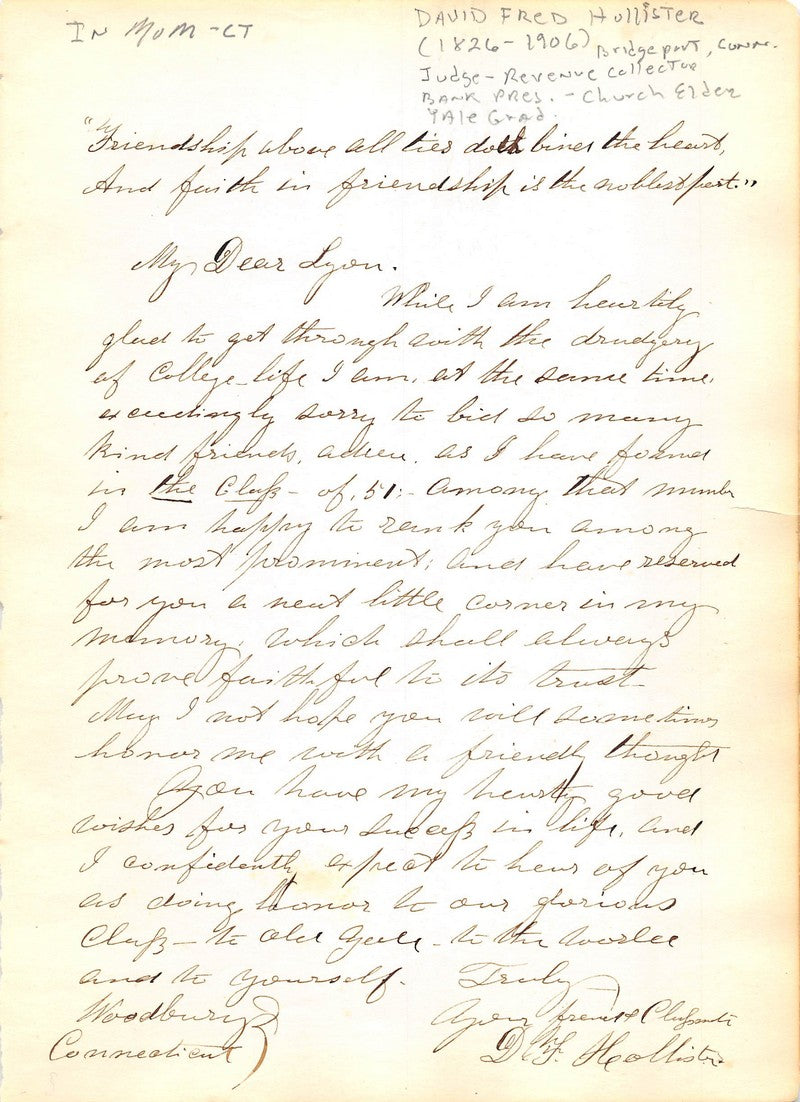 IN MOM - CT
DAVID FRED HOLLISTER
(1826-1906) Bridgeport, Conn.
Judge - Revenue Collector
BANK PRES. - Church Elder
YAle Grad.
"Friendship above all ties doth bind the heart,
And faith in friendship is the noblest part."
My Dear Lyon.
While I am heartily
glad to get through with the drudgery
of College-life I am, at the same time,
exceedingly sorry to bid so many
kind friends, adieu, as I have found
in the Class - of, 51:- Among that number
I am happy to rank you among
the most prominent; and have reserved
for you a neat little corner in my
memory, which shall always
prove faithful to its trust-
May I not hope you will sometimes
honor me with a friendly thought
You have my hearty good
wishes for your success in life, and
I confidently expect to hear of you
as doing honor to our glorious
Class - to Old Yale - to the World
and to yourself. Truly
Woodbury Your friend & Classmate
Connecticut D. F. Hollister